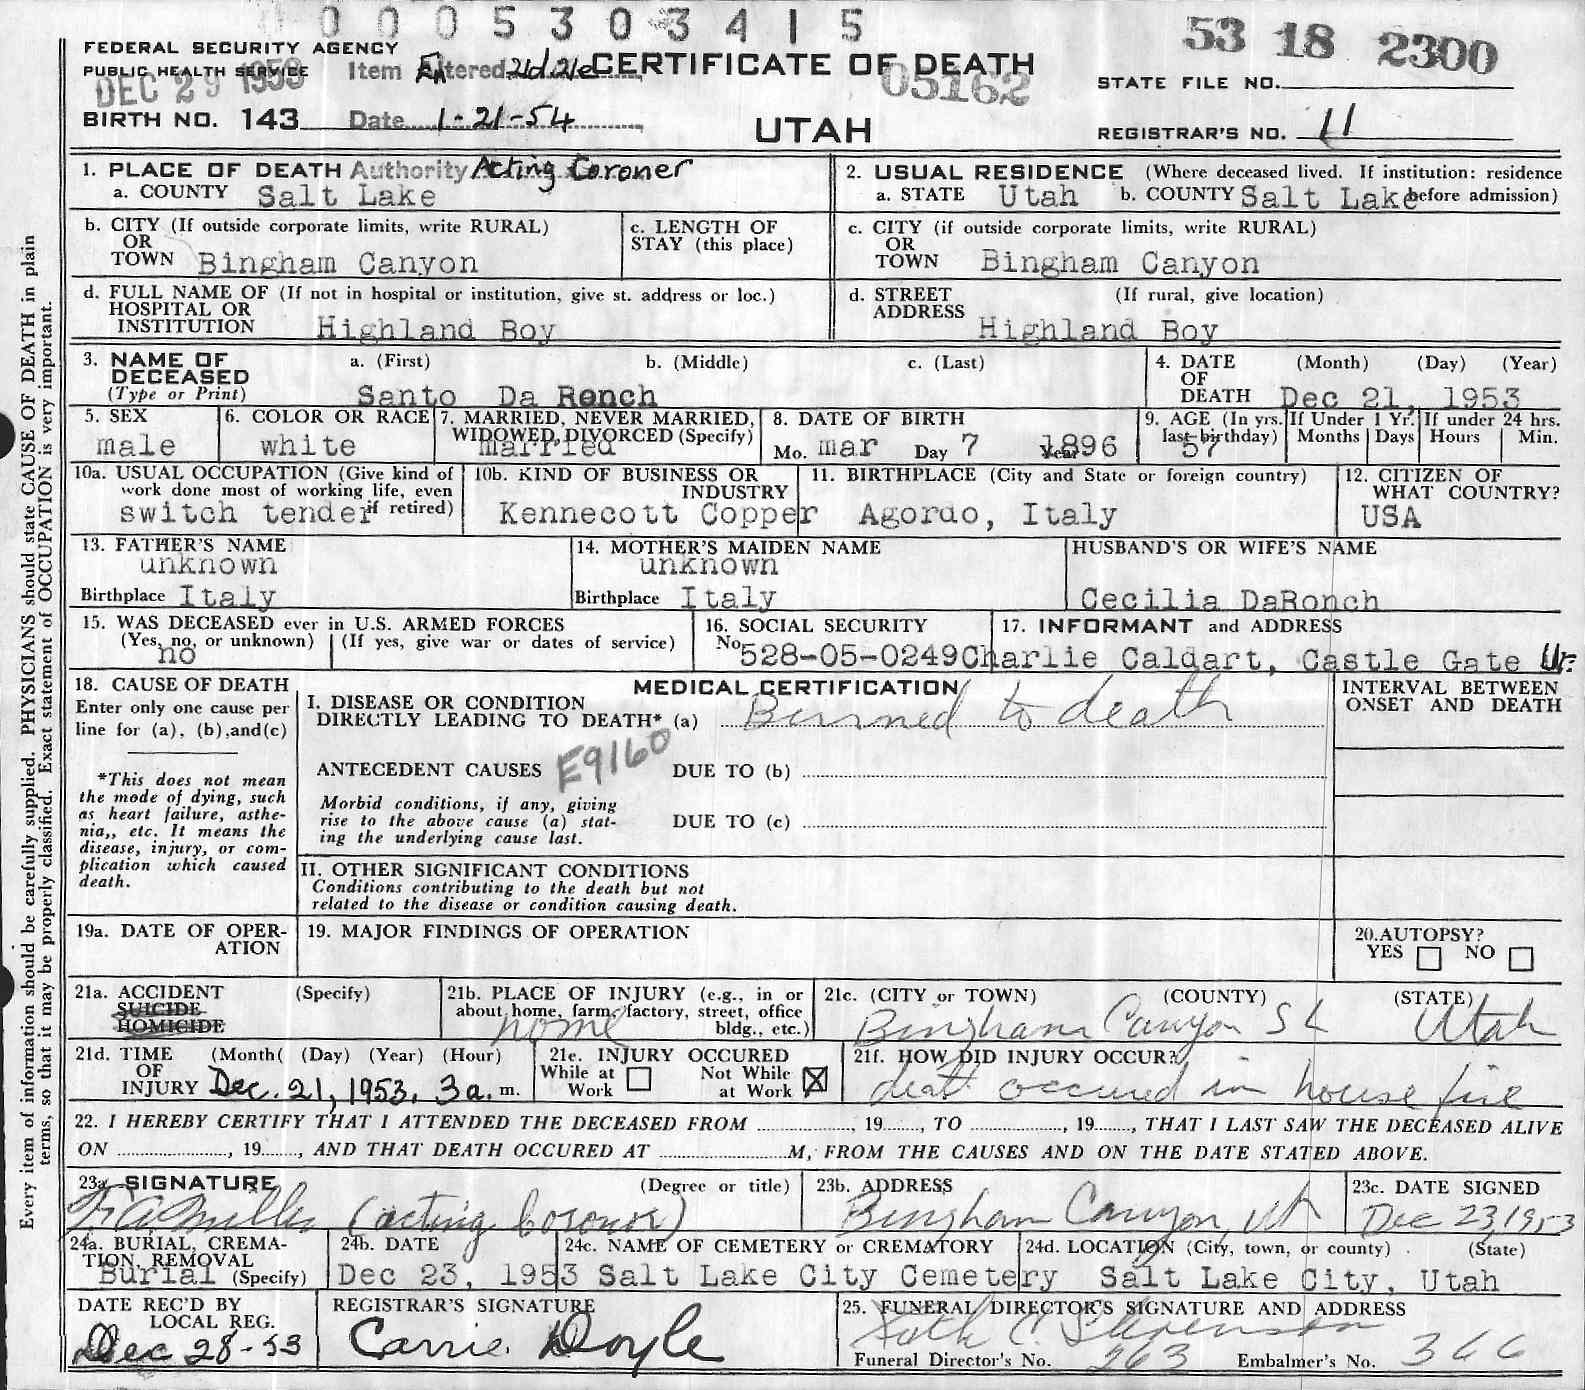 0 0 0 0 5 3 0 3 4 1 5
53 18 2300
FEDERAL SECURITY AGENCY
PUBLIC HEALTH SERVICE
DEC 29 1953
Item Entered 21d, 21e
CERTIFICATE OF DEATH
05162
STATE FILE NO.
BIRTH NO. 143
Date 1-21-54
UTAH
REGISTRAR'S NO. 11
1. PLACE OF DEATH Authority Acting Coroner
a. COUNTY Salt Lake
2. USUAL RESIDENCE (Where deceased lived. If institution: residence before admission)
a. STATE Utah b. COUNTY Salt Lake
b. CITY (If outside corporate limits, write RURAL)
OR
TOWN Bingham Canyon
c. LENGTH OF
STAY (this place)
c. CITY (if outside corporate limits, write RURAL)
OR
TOWN Bingham Canyon
d. FULL NAME OF (If not in hospital or institution, give st. address or loc.)
HOSPITAL OR
INSTITUTION Highland Boy
d. STREET (If rural, give location)
ADDRESS
Highland Boy
3. NAME OF DECEASED
(Type or Print)
a. (First) b. (Middle) c. (Last)
Santo Da Ronch
4. DATE OF DEATH (Month) (Day) (Year)
Dec 21, 1953
5. SEX
male
6. COLOR OR RACE
white
7. MARRIED, NEVER MARRIED,
WIDOWED, DIVORCED (Specify)
married
8. DATE OF BIRTH
Mo. mar Day 7 Year 1896
9. AGE (In yrs. last birthday)
57
If Under 1 Yr.
Months Days
If under 24 hrs.
Hours Min.
10a. USUAL OCCUPATION (Give kind of
work done most of working life, even
if retired)
switch tender
10b. KIND OF BUSINESS OR
INDUSTRY
Kennecott Copper
11. BIRTHPLACE (City and State or foreign country)
Agordo, Italy
12. CITIZEN OF
WHAT COUNTRY?
USA
13. FATHER'S NAME
unknown
Birthplace Italy
14. MOTHER'S MAIDEN NAME
unknown
Birthplace Italy
HUSBAND'S OR WIFE'S NAME
Cecilia DaRonch
15. WAS DECEASED ever in U.S. ARMED FORCES
(Yes, no, or unknown) (If yes, give war or dates of service)
no
16. SOCIAL SECURITY
No. 528-05-0249
17. INFORMANT and ADDRESS
Charlie Caldart, Castle Gate Ut.
18. CAUSE OF DEATH
Enter only one cause per
line for (a), (b), and (c)
*This does not mean
the mode of dying, such
as heart failure, asthe-
nia,, etc. It means the
disease, injury, or com-
plication which caused
death.
MEDICAL CERTIFICATION
I. DISEASE OR CONDITION
DIRECTLY LEADING TO DEATH* (a) Burned to death
ANTECEDENT CAUSES E9160 DUE TO (b)
Morbid conditions, if any, giving
rise to the above cause (a) stat-
ing the underlying cause last.
DUE TO (c)
INTERVAL BETWEEN
ONSET AND DEATH
II. OTHER SIGNIFICANT CONDITIONS
Conditions contributing to the death but not
related to the disease or condition causing death.
19a. DATE OF OPER-
ATION
19. MAJOR FINDINGS OF OPERATION
20. AUTOPSY?
YES NO
21a. ACCIDENT (Specify)
SUICIDE
HOMICIDE
21b. PLACE OF INJURY (e.g., in or
about home, farm, factory, street, office
bldg., etc.)
home
21c. (CITY or TOWN) (COUNTY) (STATE)
Bingham Canyon SL Utah
21d. TIME (Month( (Day) (Year) (Hour)
OF
INJURY Dec. 21, 1953, 3 a. m.
21e. INJURY OCCURED
While at Work Not While at Work
21f. HOW DID INJURY OCCUR?
death occured in house fire
22. I HEREBY CERTIFY THAT I ATTENDED THE DECEASED FROM , 19 , TO , 19 , THAT I LAST SAW THE DECEASED ALIVE
ON , 19 , AND THAT DEATH OCCURED AT M, FROM THE CAUSES AND ON THE DATE STATED ABOVE.
23a. SIGNATURE (Degree or title)
Miller (acting Coroner)
23b. ADDRESS
Bingham Canyon, Ut
23c. DATE SIGNED
Dec 23, 1953
24a. BURIAL, CREMA-
TION, REMOVAL
Burial (Specify)
24b. DATE
Dec 23, 1953
24c. NAME OF CEMETERY or CREMATORY
Salt Lake City Cemetery
24d. LOCATION (City, town, or county) (State)
Salt Lake City, Utah
DATE REC'D BY
LOCAL REG.
Dec 28-53
REGISTRAR'S SIGNATURE
Carrie Doyle
25. FUNERAL DIRECTOR'S SIGNATURE AND ADDRESS
Funeral Director's No. 263 Embalmer's No. 366
Every item of information should be carefully supplied. PHYSICIANS should state CAUSE OF DEATH in plain
terms, so that it may be properly classified. Exact statement of OCCUPATION is very important.